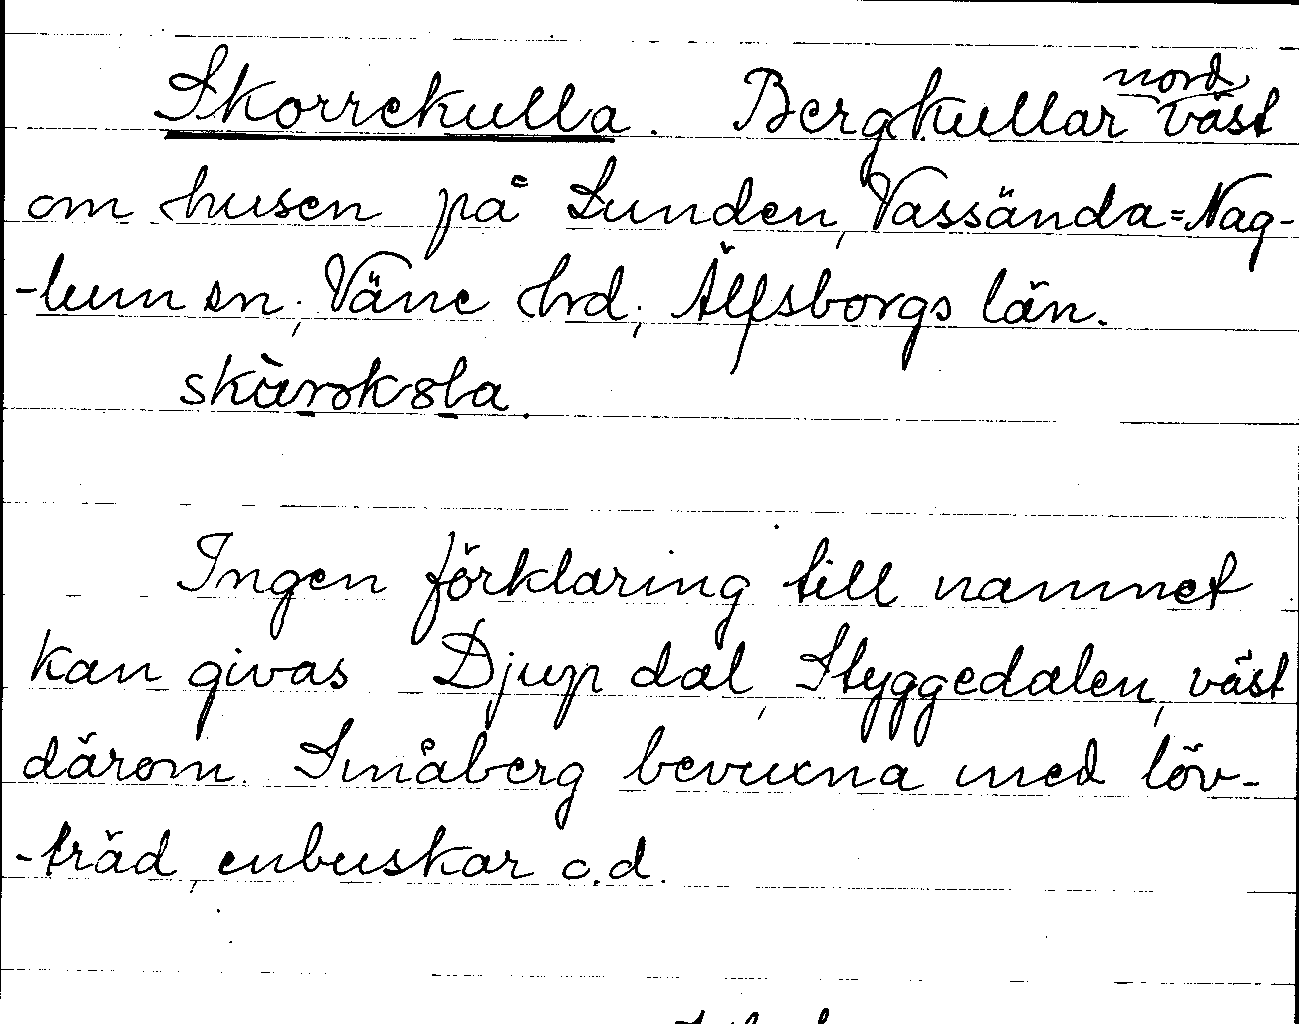 Skorrekulla. Bergkullar nordväst
om husen på Lunden, Vassända=Nag-
-lum sn; Väne hd; Älfsborgs län.
Ingen förklaring till namnet
kan givas Djup dal, Styggedalen, väst
därom. Småberg bevuxna med löv-
-träd, enbuskar o.d.